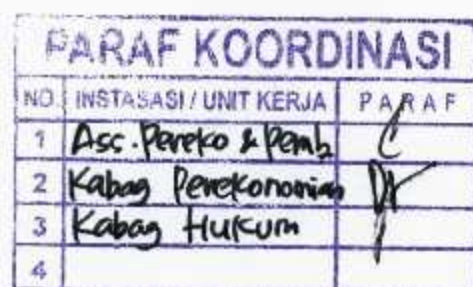 PARAF KOORDINASI
NO. INSTASASI / UNIT KERJA PARAF
1 Asc. Pereko & Pemb
2 Kabag Perekonomian
3 Kabag Hukum
4